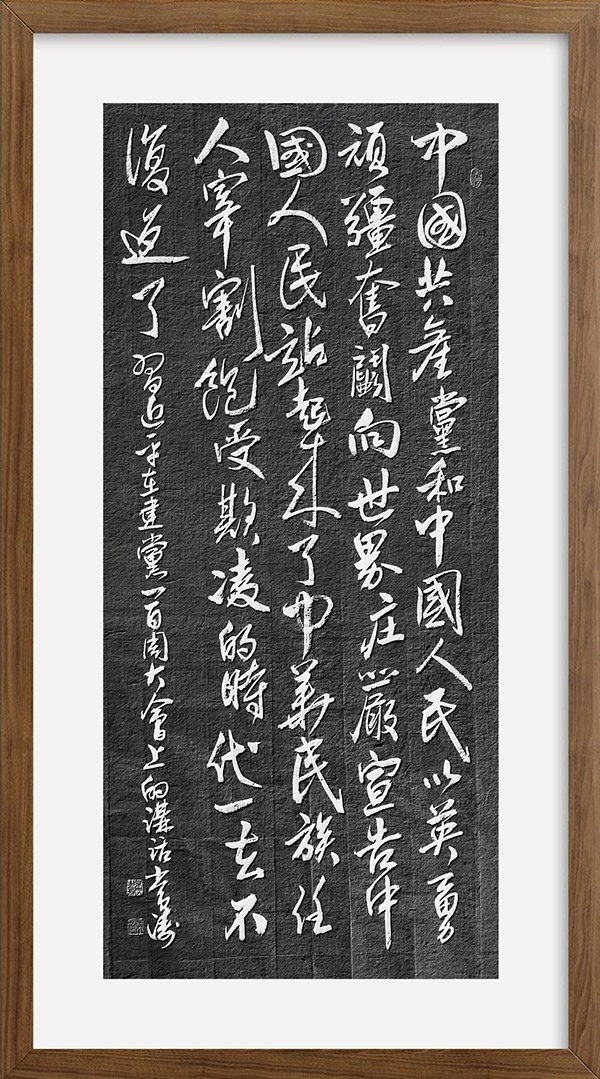 中國共產黨和中國人民以英勇
頑疆奮鬭向世界庄嚴宣告中
國人民站起来了中華民族任
人宰割飽受欺凌的時代一去不
復返了
習近平在建黨一百周大會上的講話 書濤